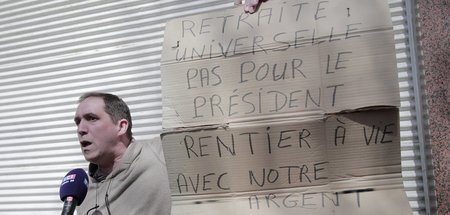 RETRAITE :
UNIVERSELLE
PAS POUR LE
PRÉSIDENT
RENTIER À VIE
AVEC NOTRE
ARGENT